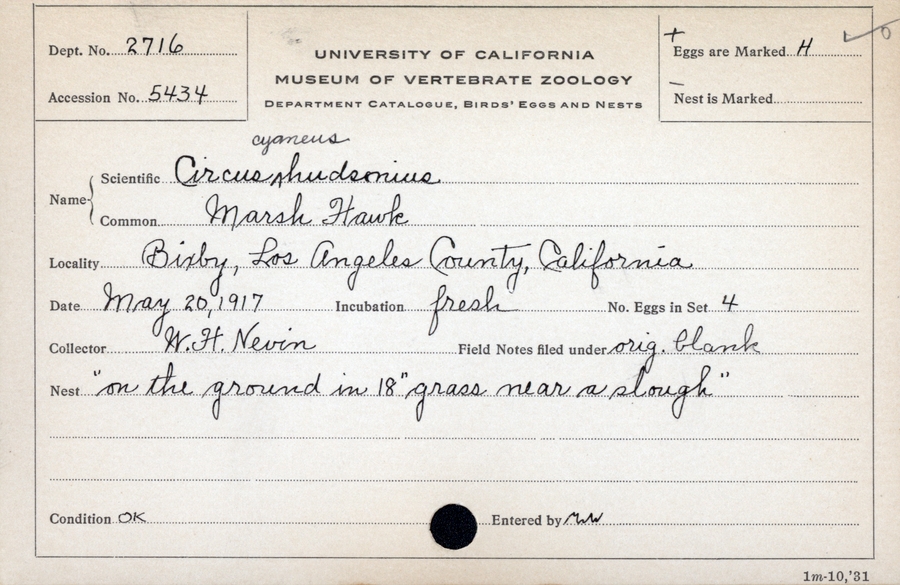 Dept. No. 2716
Accession No. 5434
UNIVERSITY OF CALIFORNIA
MUSEUM OF VERTEBRATE ZOOLOGY
DEPARTMENT CATALOGUE, BIRDS' EGGS AND NESTS
+
Eggs are Marked H
–
Nest is Marked
cyaneus
Name Scientific Circus hudsonius
Common Marsh Hawk
Locality Bixby, Los Angeles County, California
Date May 20, 1917 Incubation fresh No. Eggs in Set 4
Collector W. H. Nevin Field Notes filed under orig. blank
Nest "on the ground in 18" grass near a slough"
Condition OK Entered by
1m-10,'31